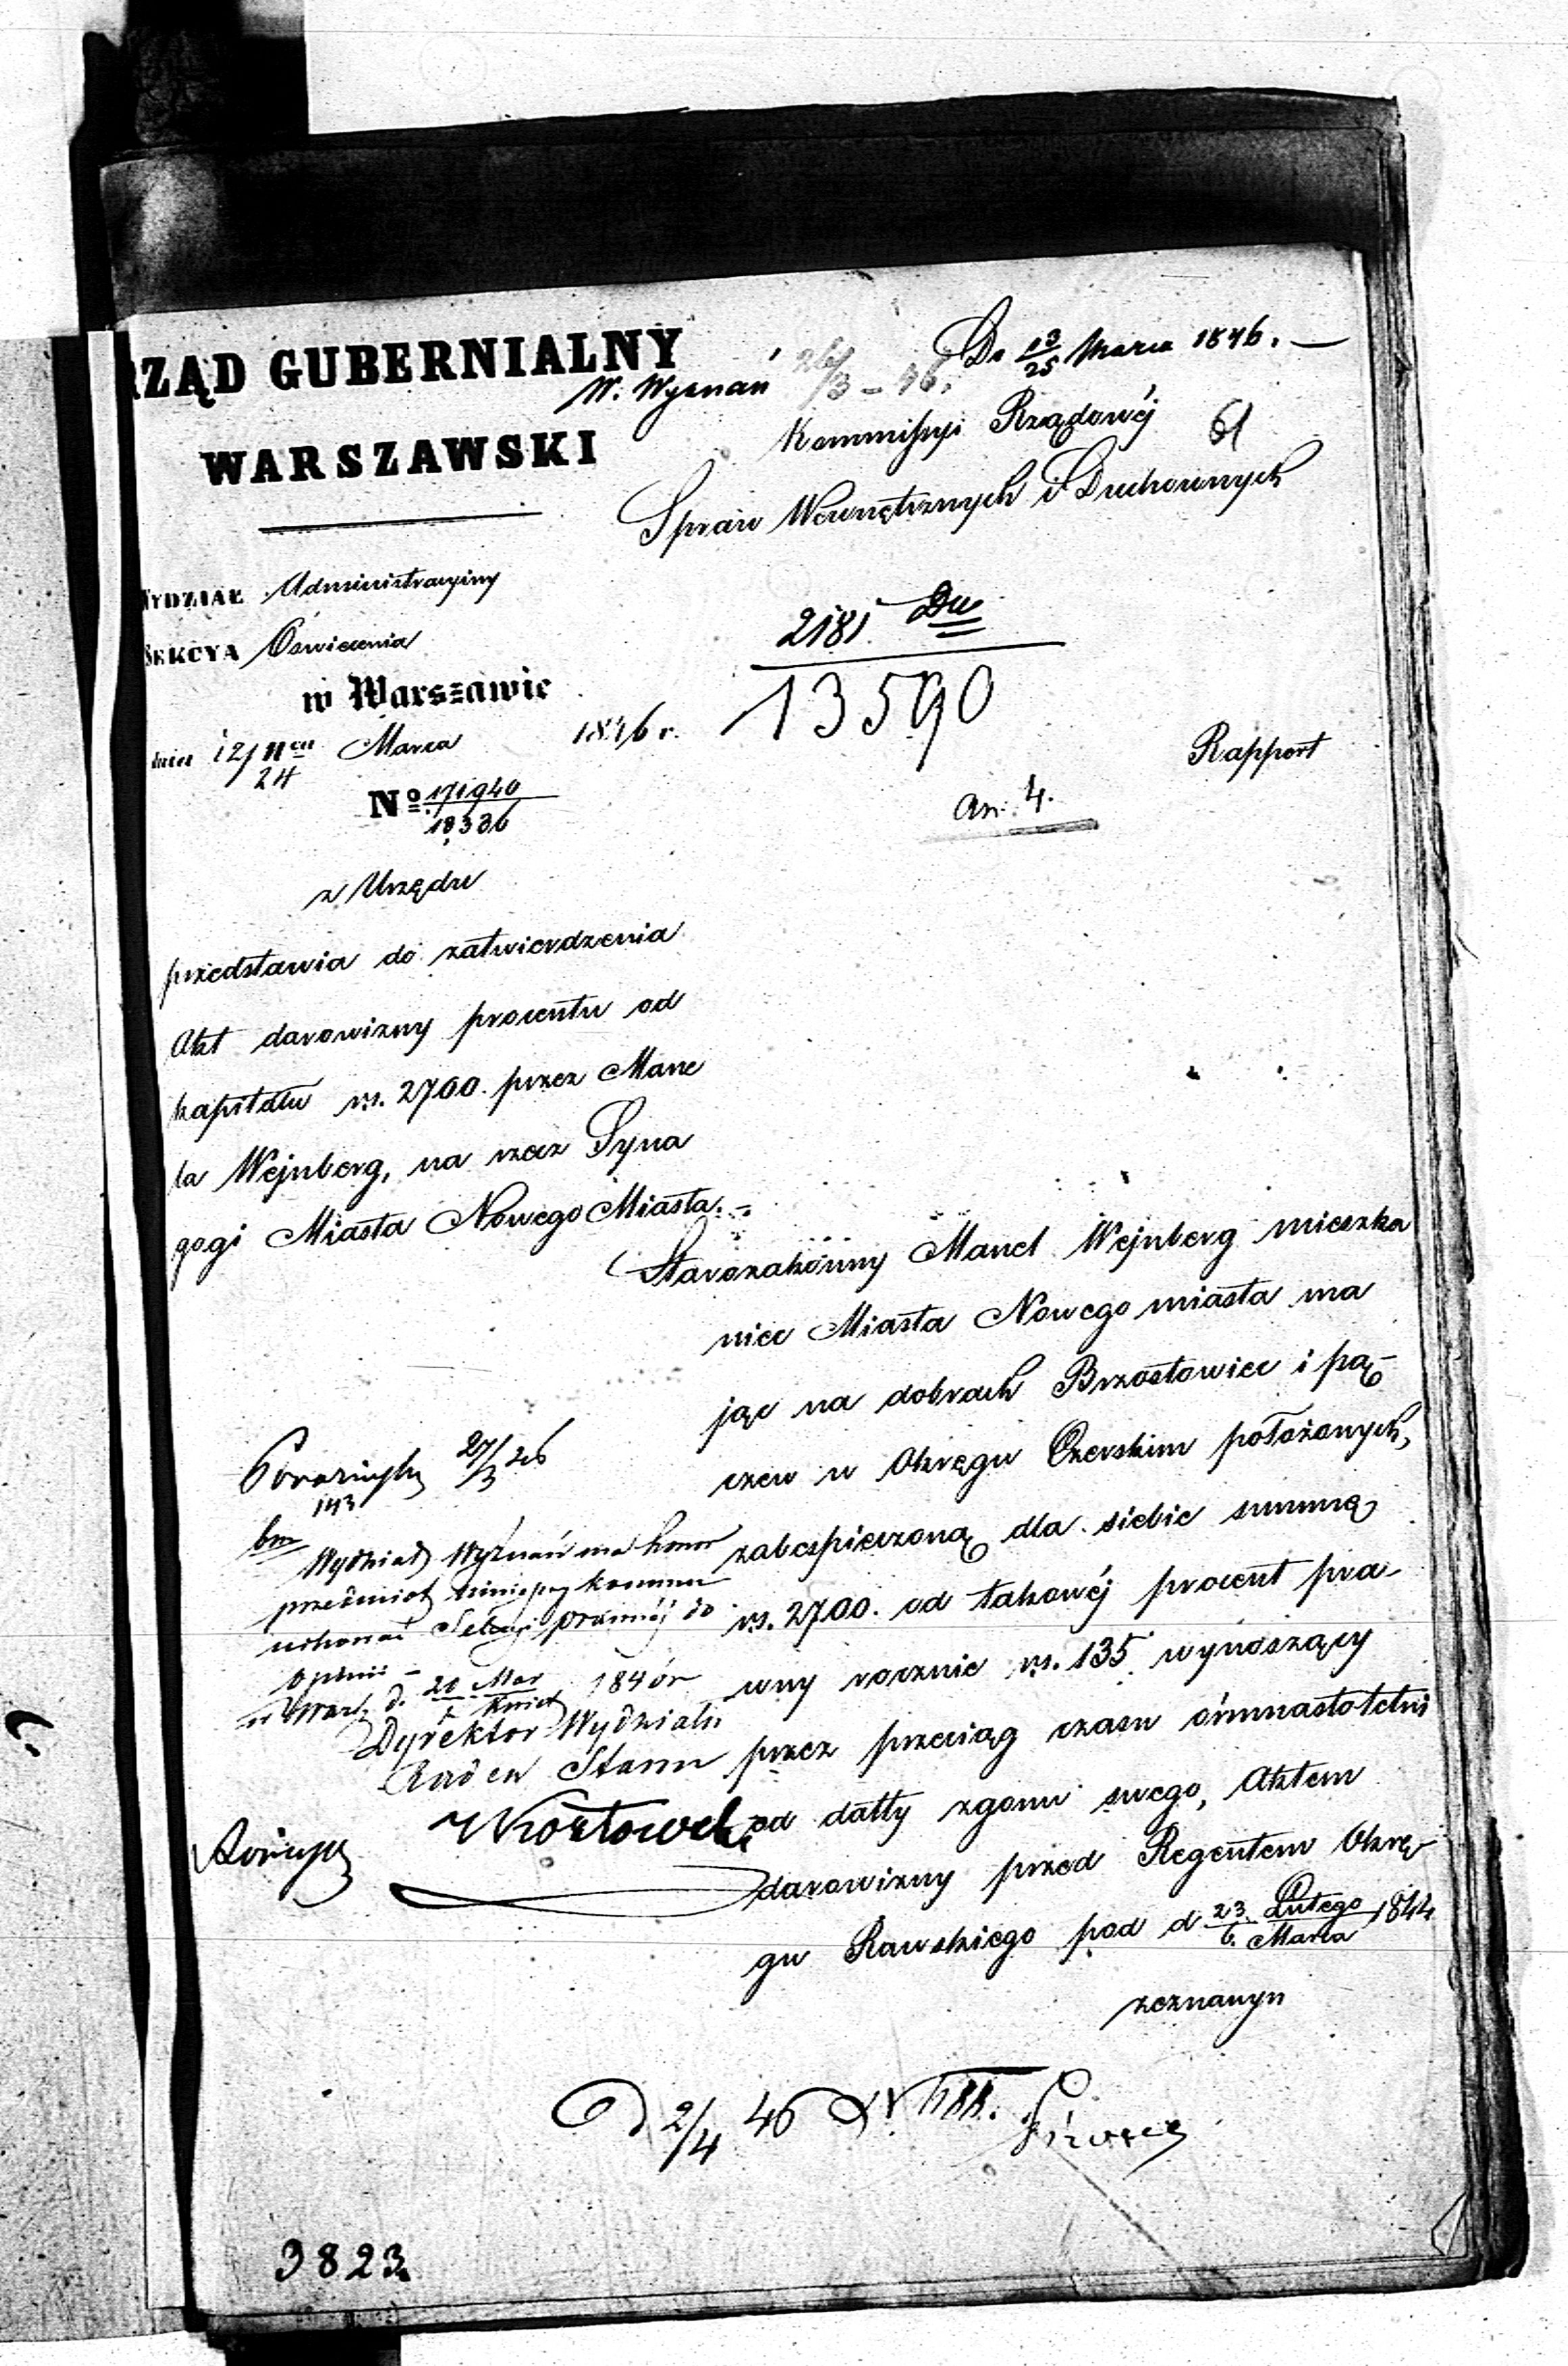 RZĄD GUBERNIALNY
WARSZAWSKI
W. Wyznań 26/3 – 46.
D. 13/25 Marca 1846. —
Kommissyi Rządowéj
61
Spraw Wewnętrznych i Duchownych
WYDZIAŁ Administracyiny
SEKCYA Oświecenia
w Warszawie
dnia 12/24 Marca 1846 r.
No. 171940/18336
2181
13590
an. 4.
Rapport
z Urzędu
przedstawia do zatwierdzenia
Akt darowizny procentu od
kapitału rs. 2700. przez Mane
la Wejnberg, na rzecz Syna
gogi Miasta Nowego Miasta. –
Starozakonny Manel Wejnberg mieszka
niec Miasta Nowego miasta ma
jąc na dobrach Brzostowiec i pą-
czew w Okręgu Czerskim położonych,
zabespieczoną dla siebie summę
rs. 2700. od takowéj procent pra-
wny rocznie rs. 135 wynoszący
przez przeciąg czasu ośmnastoletni
od datty zgonu swego, Aktem
darowizny przed Regentem Okrę-
gu Rawskiego pod d. 23. Lutego/6. Marca 1844
zeznanym
27/3 46
143
Wydział Wyznań ma honor
przedmiot niniejszy
Sekcyi prawnéj do
opinii –
w Warsz. d. 20 Mar/1 Kwiet 184 r
Dyrektor Wydziału
Radca Stanu
d 2/4 46
3823.